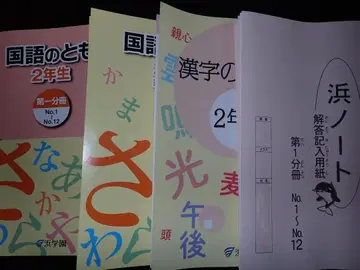 国語のとも
2年生
第一分冊
No.1
〜
No.12
さ
な
あ
か
や
わ
ら
浜学園
国語
か
ま
さ
わ
ら
親心
雲
鳴
光
麦
午
後
頭
漢字の
2年
浜学園
浜ノート
解答記入用紙
第1分冊
No.1〜No.12